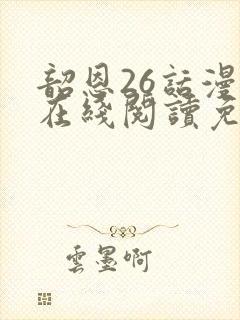 韶恩26話漫
在綫閱讀免
雲墨啊